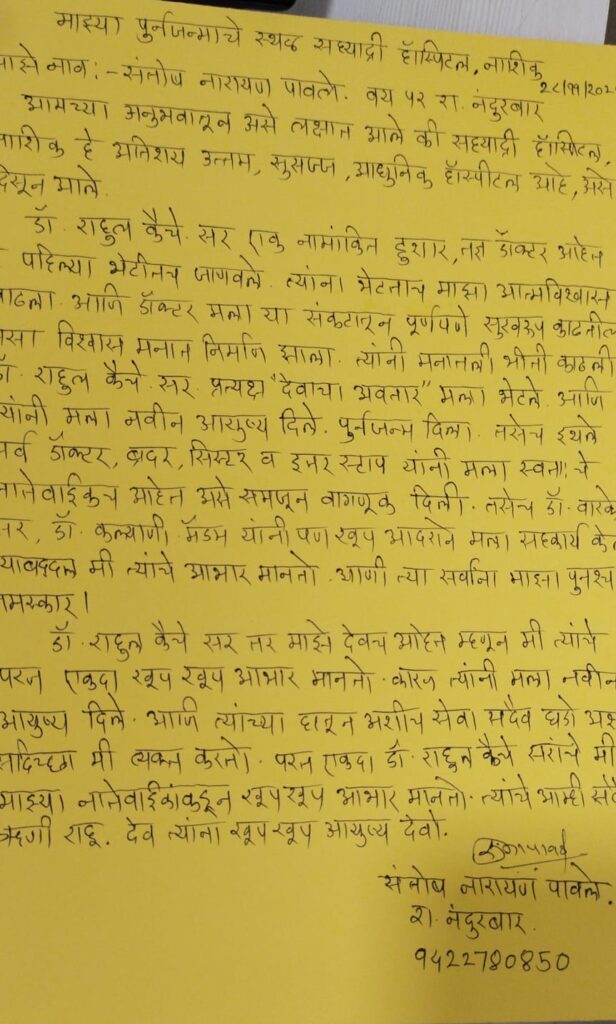 माझ्या पुर्नजन्माचे स्थळ सह्याद्री हॉस्पिटल, नाशिक
माझे नाव :- संतोष नारायण पावले. वय ५२ रा. नंदुरबार
आमच्या अनुभवातून असे लक्षात आले की सह्याद्री हॉस्पिटल,
नाशिक हे अतिशय उत्तम, सुसज्ज, आधुनिक हॉस्पीटल आहे, असे
दिसून आले.
डॉ. राहुल कैचे. सर एक नामांकित हुशार, तज्ञ डॉक्टर आहेत
पहिल्या भेटीतच जाणवले. त्यांना भेटताच माझा आत्मविश्वास
वाढला. आणि डॉक्टर मला या संकटातून पूर्णपणे सुखरूप काढतील
असा विश्वास मनात निर्माण झाला. त्यांनी मनातली भीती काढली
डॉ. राहुल कैचे. सर. प्रत्यक्ष "देवाचा अवतार" मला भेटले. आणि
त्यांनी मला नवीन आयुष्य दिले. पुर्नजन्म दिला. तसेच इथले
सर्व डॉक्टर, ब्रदर, सिस्टर व इतर स्टाप यांनी मला स्वताःचे
नातेवाईकच आहेत असे समजून वागणूक दिली. तसेच डॉ. वारके
सर, डॉ. कल्याणी मॅडम यांनी पण खूप आदराने मला सहकार्य केल
याबद्दल मी त्यांचे आभार मानतो. आणी त्या सर्वांना माझा पुनश्च
नमस्कार।
डॉ. राहुल कैचे सर तर माझे देवच आहेत म्हणून मी त्यांचे
परत एकदा खूप खूप आभार मानतो. कारण त्यांनी मला नवीन
आयुष्य दिले. आणि त्यांच्या हातून अशीच सेवा सदैव घडो अशी
सदिच्छा मी व्यक्त करतो. परत एकदा डॉ. राहुल कैचे सरांचे मी
माझ्या नातेवाईकांकडून खूप खूप आभार मानतो. त्यांचे आम्ही सदै
ऋणी राहू. देव त्यांना खूप खूप आयुष्य देवो.
संतोष नारायण पावले.
रा. नंदुरबार.
9422780850